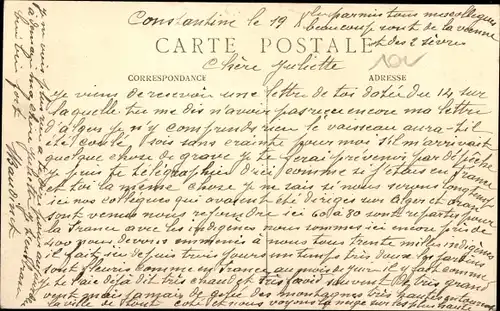 Constantine le 19 Xbre parmis tous mes collegues
beaucoup sont de la vienne
CARTE POSTALE et des 2 sèvres
Chère Juliette
CORRESPONDANCE ADRESSE
Je viens de recevoir une lettre de toi datée du 14 sur
laquelle tu me dis n'avoir pas reçu encore ma lettre
d'alger je n'y comprends rien le vaisseau aura-t-il
été coulé sois sans crainte pour moi s'il m'arrivait
quelque chose de grave je te ferai prévenir par dépêche
je puis te télégraphier d'ici comme si j'etais en france
et toi la meme chose je ne sai si nous serons longtemps
ici nos collegues qui avaient été dirigés sur Alger et oran
sont venus nous rejoindre ici 60 a 80 sont repartis pour
la France avec les indigènes nous sommes ici encore près de
400 nous devons emmener à nous tous trente milles indigènes
il fait ici depuis trois jours un temps très doux les jardins
sont fleuris comme en france au mois de juin il y fait comme
je te l'ai déjà dit très chaud et très froid souvent de très grand
vent mais jamais de gelée des montagnes très hautes entourent
la ville de tout coté et nous voyons la neige sur les plus hautes
bien fort
Baudinet